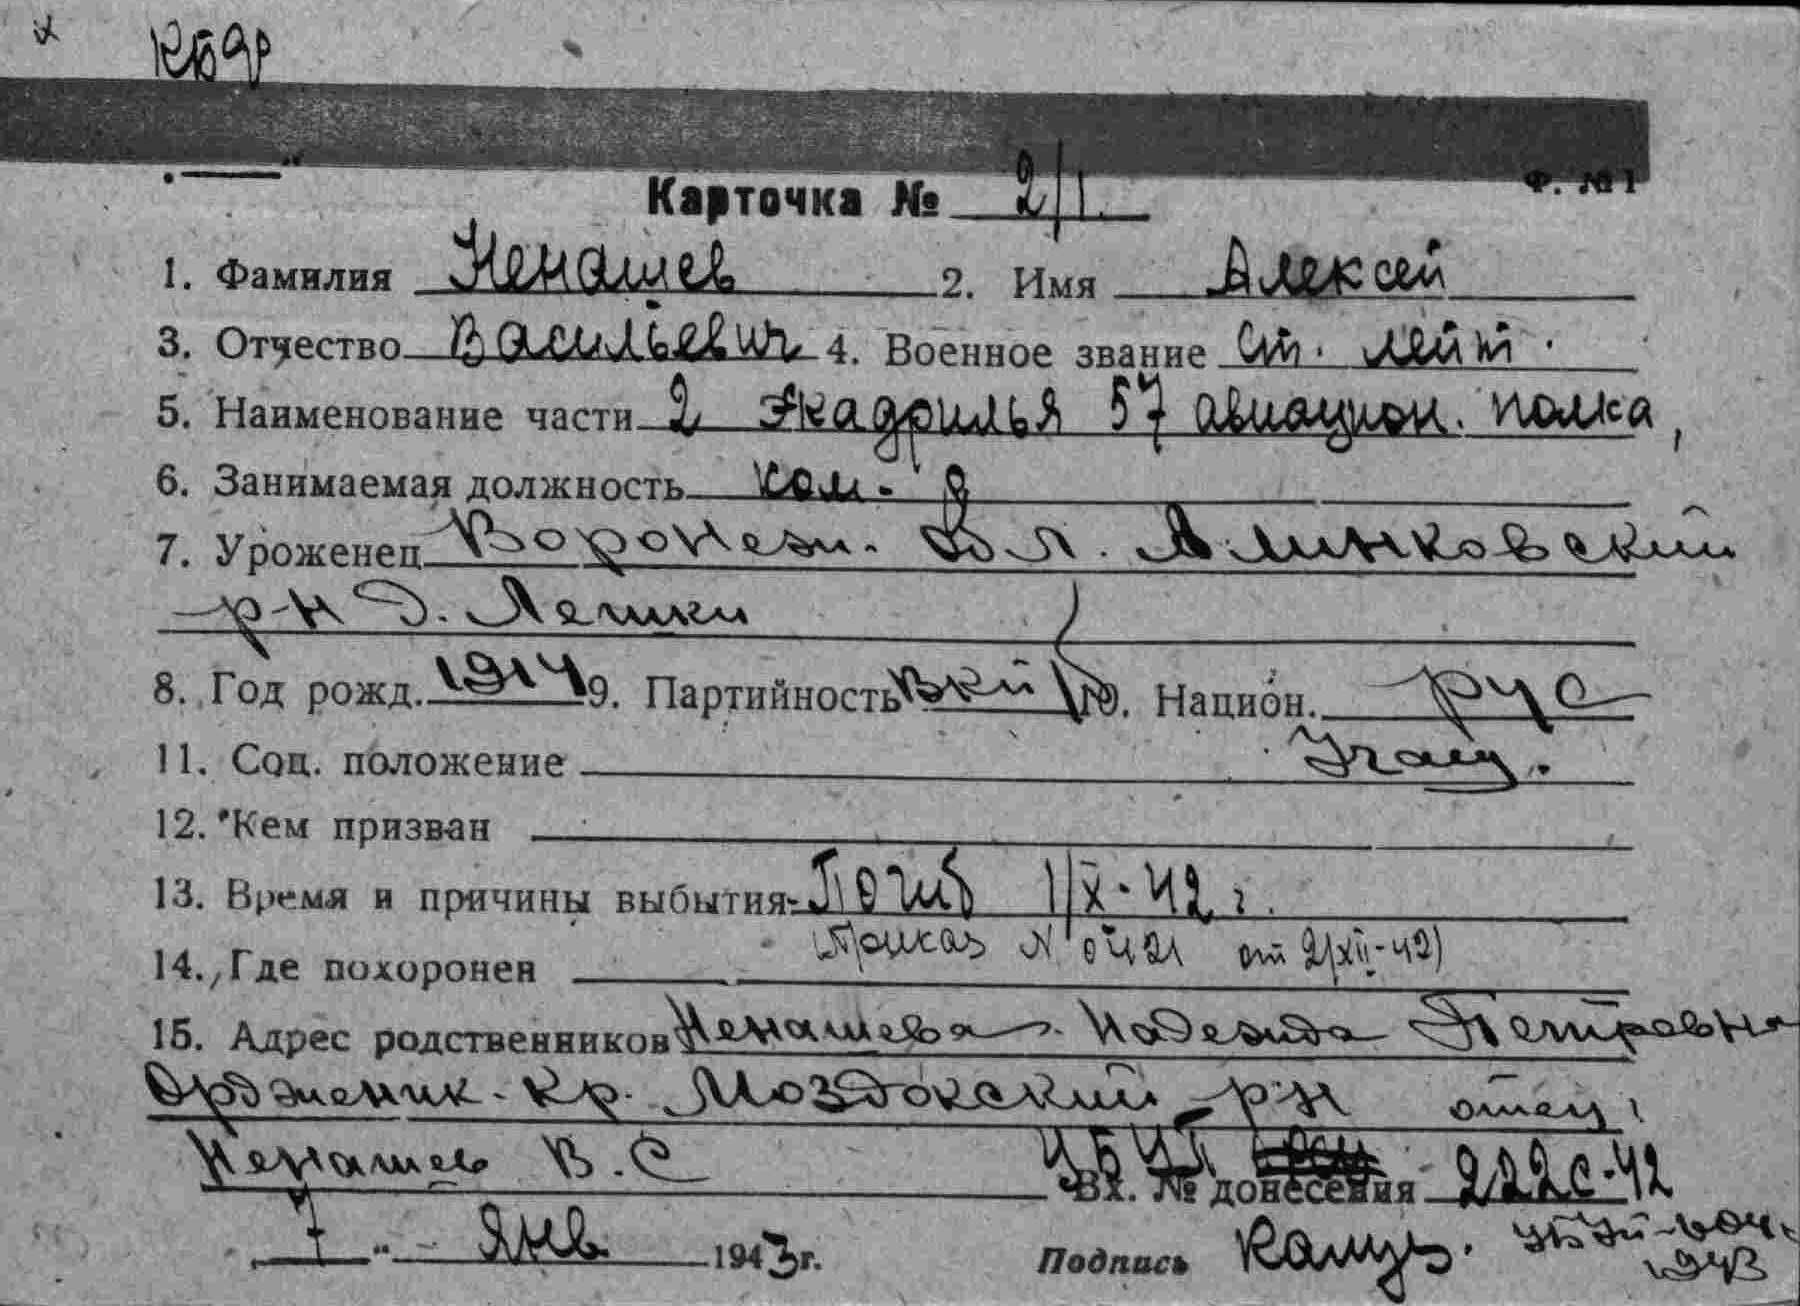 х КБФ
Ф. № 1
Карточка № 2/1.
1. Фамилия Ненашев 2. Имя Алексей
3. Отчество Васильевич 4. Военное звание ст. лейт.
5. Наименование части 2 экадрилья 57 авиацион. полка,
6. Занимаемая должность ком-р
7. Уроженец Воронеж. обл.
р-н д. Лешки
8. Год рожд. 1914 9. Партийность ВКП/б 10. Национ. рус
11. Соц. положение учащ.
12. Кем призван
13. Время и причины выбытия Погиб 1/X-42 г.
(Приказ N 0421 от 2/XII-42)
14. Где похоронен
15. Адрес родственников Ненашева Надежда Петровна
Орджоник. кр. Моздокский р-н отец:
Ненашев В.С
Вх. № донесения 222с-42
7 " янв 1943 г. Подпись
1943